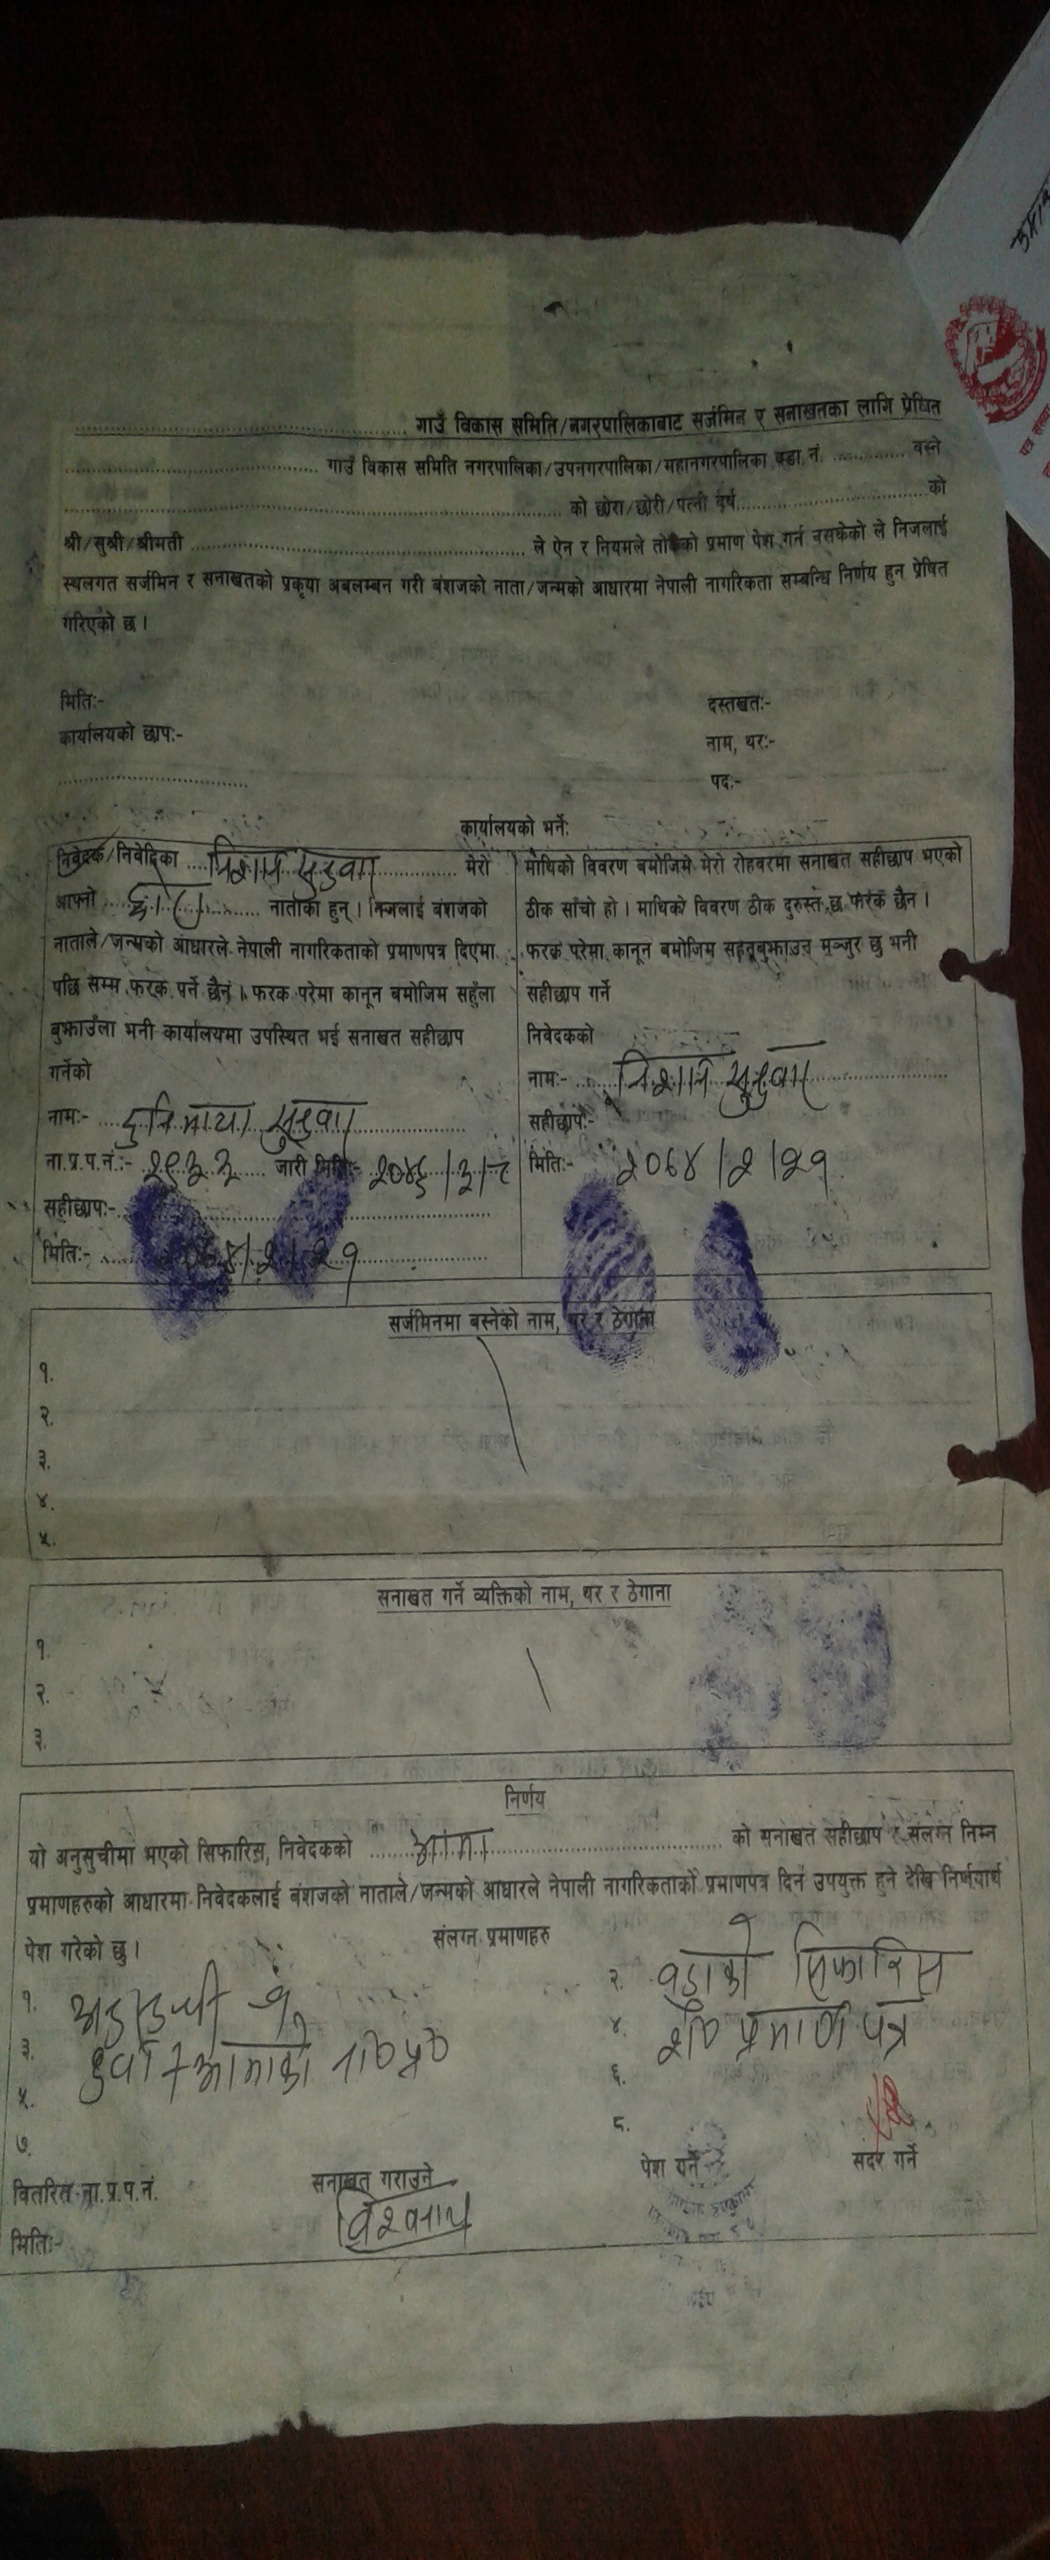 गाउँ विकास समिति/नगरपालिकाबाट सर्जमिन ए सनाखतका लागि प्रेषित
गाउँ विकास समिति नगरपालिका/उपनगरपालिका/महानगरपालिका वडा नं. वस्ने
को छोरा/छोरी/पत्नी वर्ष को
श्री/सुश्री/श्रीमती ले ऐन र नियमले तोकेको प्रमाण पेश गर्न नसकेको ले निजलाई
स्थलगत सर्जमिन र सनाखतको प्रकृया अबलम्बन गरी बंशजको नाता/जन्मको आधारमा नेपाली नागरिकता सम्बन्धि निर्णय हुन प्रेषित
गरिएको छ ।
मितिः- दस्तखतः-
कार्यालयको छापः- नाम, थरः-
पदः-
कार्यालयको भर्नेः
निवेदक/निवेदिका मेरो
आफ्नो छोरा नाताका हुन् । निजलाई बंशजको
नाताले/जन्मको आधारले नेपाली नागरिकताको प्रमाणपत्र दिएमा
पछि सम्म फरक पर्ने छैन । फरक परेमा कानून बमोजिम सहुँला
बुझाउँला भनी कार्यालयमा उपस्थित भई सनाखत सहीछाप
गर्नेको
नामः- माया
ना.प्र.प.नं.:- २९३३ जारी मितिः- २०४६/३/८
सहीछापः-
मितिः- २०६४/२/२१
माथिको विवरण बमोजिम मेरो रोहवरमा सनाखत सहीछाप भएको
ठीक साँचो हो । माथिको विवरण ठीक दुरुस्त छ फरक छैन ।
फरक परेमा कानून बमोजिम सहनुबुझाउन मञ्जुर छु भनी
सहीछाप गर्ने
निवेदकको
नामः-
सहीछापः-
मितिः- २०६४/२/२१
सर्जमिनमा बस्नेको नाम, थर र ठेगाना
१.
२.
३.
४.
५.
सनाखत गर्ने व्यक्तिको नाम, थर र ठेगाना
१.
२.
३.
निर्णय
यो अनुसुचीमा भएको सिफारिस, निवेदकको आमा को सनाखत सहीछाप र संलग्न निम्न
प्रमाणहरुको आधारमा निवेदकलाई बंशजको नाताले/जन्मको आधारले नेपाली नागरिकताको प्रमाणपत्र दिन उपयुक्त हुने देखि निर्णयार्थ
पेश गरेको छु ।
संलग्न प्रमाणहरु
१. २. वडाको सिफारिस
३. आमाको ४. प्रमाण पत्र
५. ६.
७. ८.
वितरित ना.प्र.प.नं. सनाखत गराउने पेश गर्ने सदर गर्ने
मितिः-